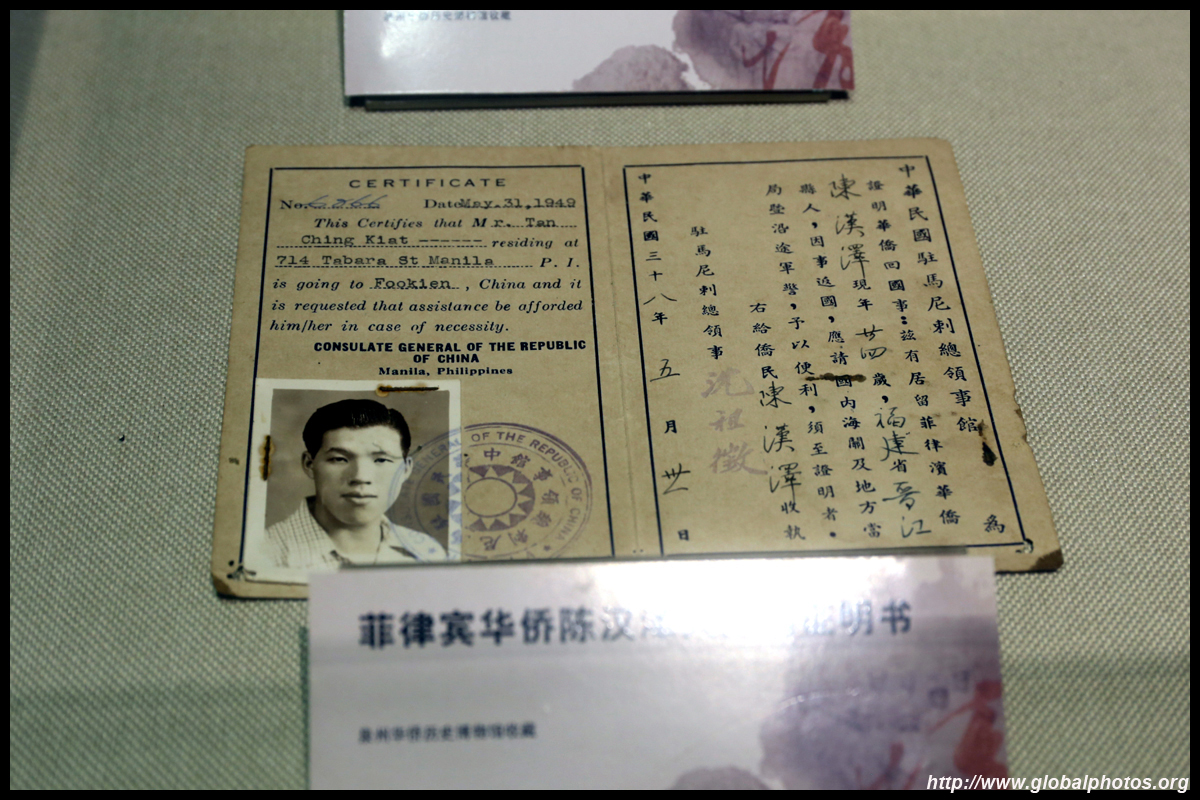 CERTIFICATE
No. Date May.31,1949
This Certifies that Mr. Tan
Ching Kiat ------ residing at
714 Tabara St Manila P. I.
is going to Fookien , China and it
is requested that assistance be afforded
him/her in case of necessity.
CONSULATE GENERAL OF THE REPUBLIC
OF CHINA
Manila, Philippines
GENERAL OF THE REPUBLIC OF CHINA
中華民國駐馬尼剌總領事館 為
證明華僑回國事：茲有居留菲律濱華僑
陳漢澤現年廿四歲，福建省晉江
縣人，因事返國，應請國內海關及地方當
局暨沿途軍警，予以便利，須至證明者。
右給僑民陳漢澤收執
駐馬尼剌總領事 沈祖徵
中華民國三十八年五月卅一日
菲律宾华侨陈汉 明书
泉州华侨历史博物馆收藏
http://www.globalphotos.org